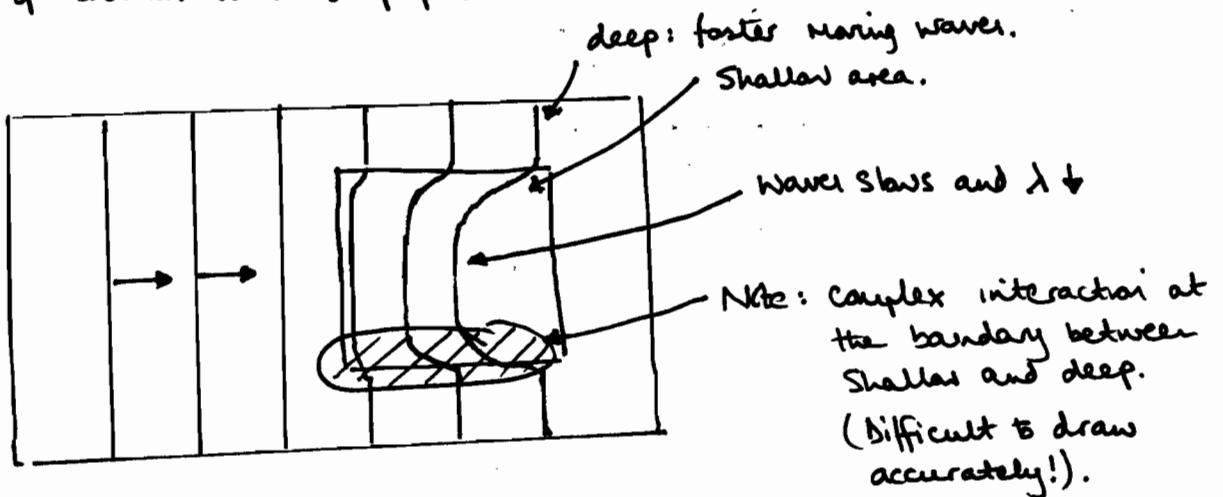 deep: faster moving waves.
Shallow area.
Waves slows and λ ↓
Note: complex interaction at
the boundary between
Shallow and deep.
(Difficult to draw
accurately!).